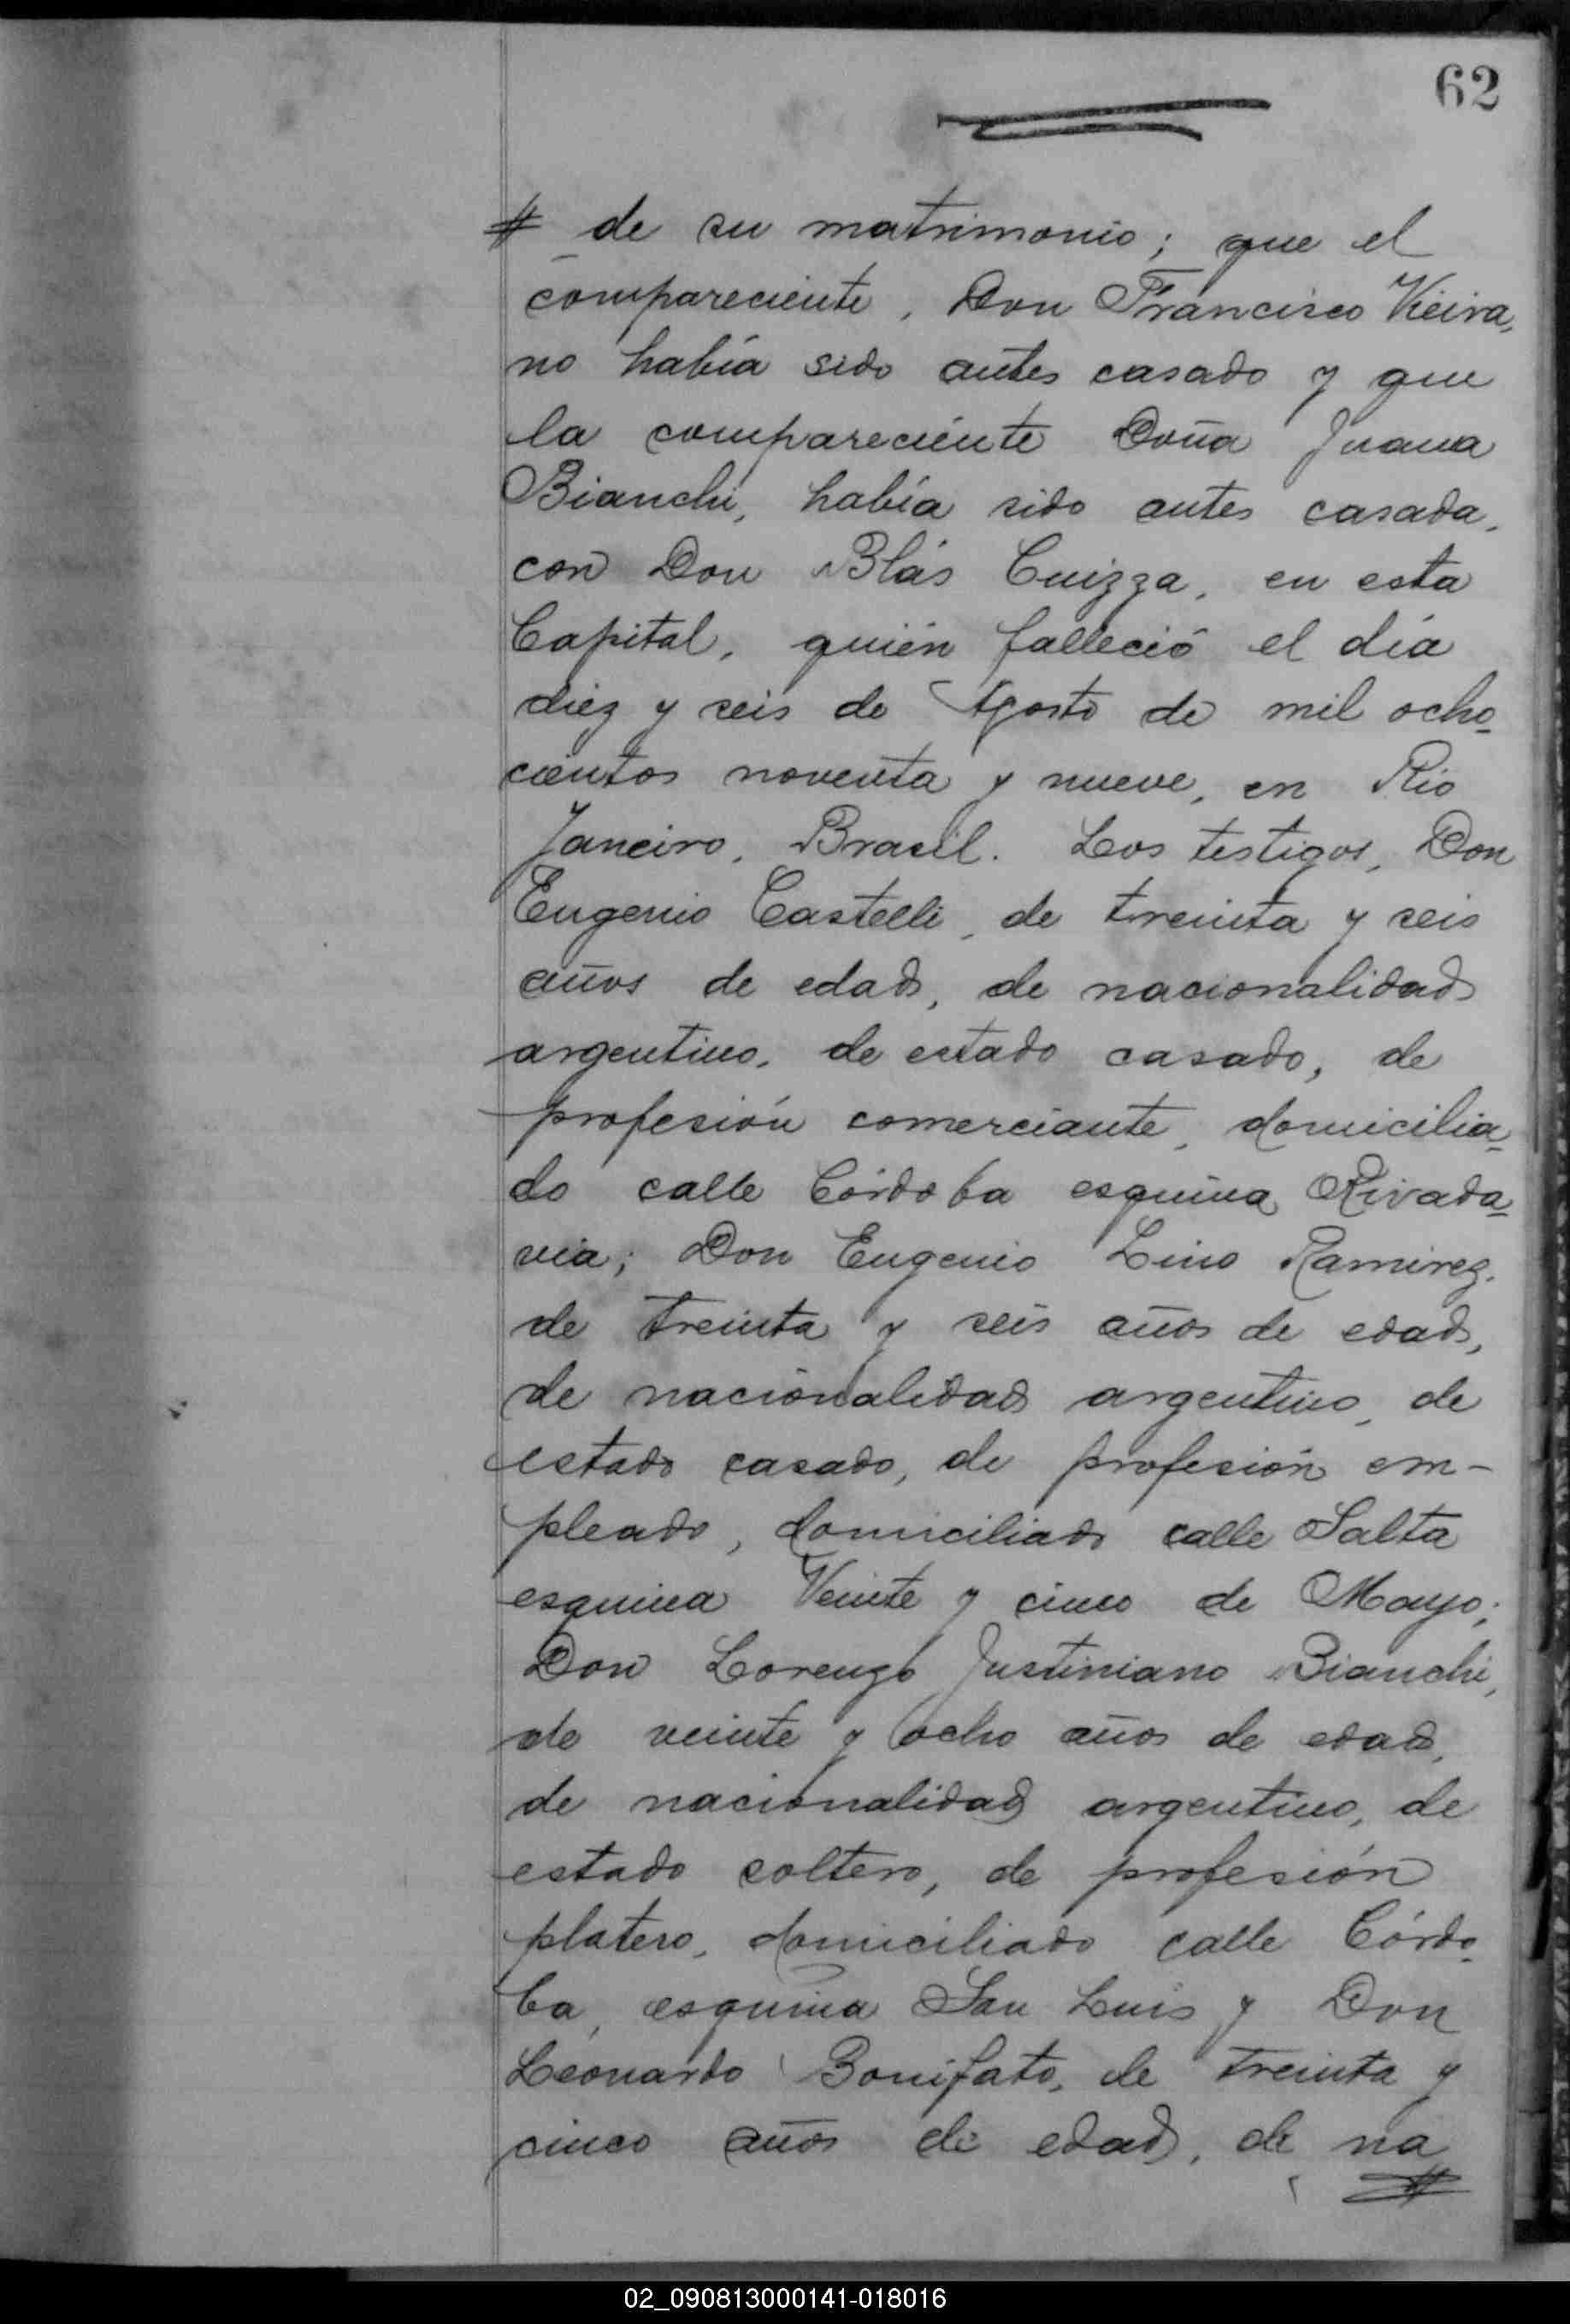 62
# de su matrimonio; que el
compareciente, Don Francisco Vieira,
no había sido antes casado y que
la compareciente Doña Juana
Bianchi, había sido antes casada,
con Don Blás Cuizza, en esta
Capital, quién falleció el día
diez y seis de Agosto de mil ocho-
cientos noventa y nueve, en Rio
Janeiro, Brasil. Los testigos, Don
Eugenio Castelli, de treinta y seis
años de edad, de nacionalidad
argentino, de estado casado, de
profesión comerciante, domicilia-
do calle Córdoba esquina Rivada-
via; Don Eugenio Lino Ramirez,
de treinta y seis años de edad,
de nacionalidad argentino, de
estado casado, de profesión em-
pleado, domiciliado calle Salta
esquina Veinte y cinco de Mayo;
Don Lorenzo Justiniano Bianchi,
de veinte y ocho años de edad,
de nacionalidad argentino, de
estado soltero, de profesión
platero, domiciliado calle Córdo-
ba, esquina San Luis y Don
Leonardo Bonifato, de treinta y
cinco años de edad, de na
#
02_090813000141-018016